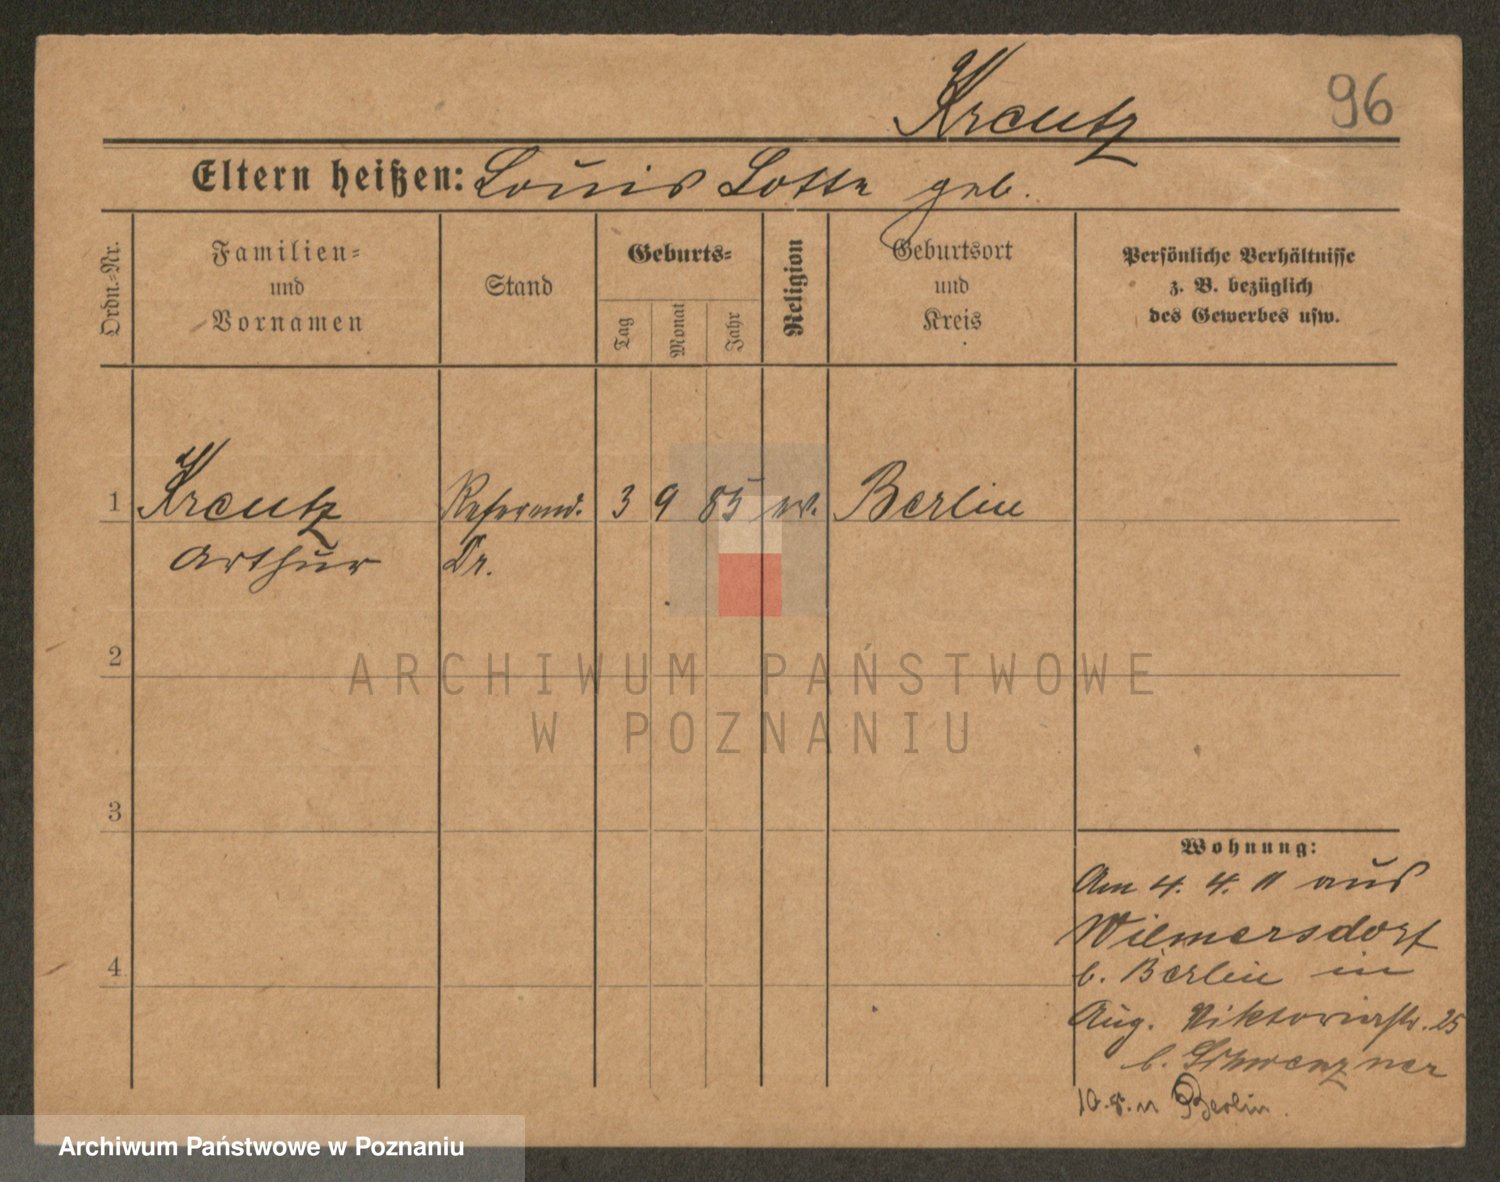 Kreutz
96
Eltern heißen: Louis Lotte geb.
Ordn.-Nr.
Familien-
und
Vornamen
Stand
Geburts-
Tag
Monat
Jahr
Religion
Geburtsort
und
Kreis
Persönliche Verhältnisse
z. B. bezüglich
des Gewerbes usw.
1 Kreutz Referend. 3 9 85 ev. Berlin
Arthur Dr.
2
3
4
Wohnung:
Am 4. 4. 11 aus
Wilmersdorf
b. Berlin in
Aug. Viktoriastr. 25
b. Schwenzner
10.8.11 Berlin.
ARCHIWUM PAŃSTWOWE
W POZNANIU
Archiwum Państwowe w Poznaniu